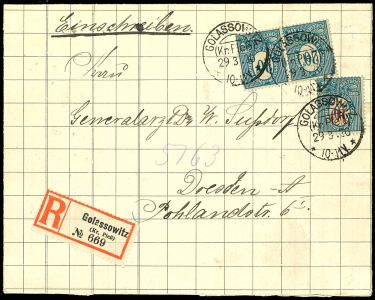 Einschreiben.
GOLASSOWITZ
(Kr. Pleß)
29 3
10-11V
GOLASSOWITZ
20
20
GOLASSOWITZ
(Kr. Pleß)
29 3 20
10-11V
Frau
Generalarzt Dr. W. Sußdorf
5763
Dresden-A
Pohlandstr. 6
R
Golassowitz
(Kr. Pleß)
№ 669